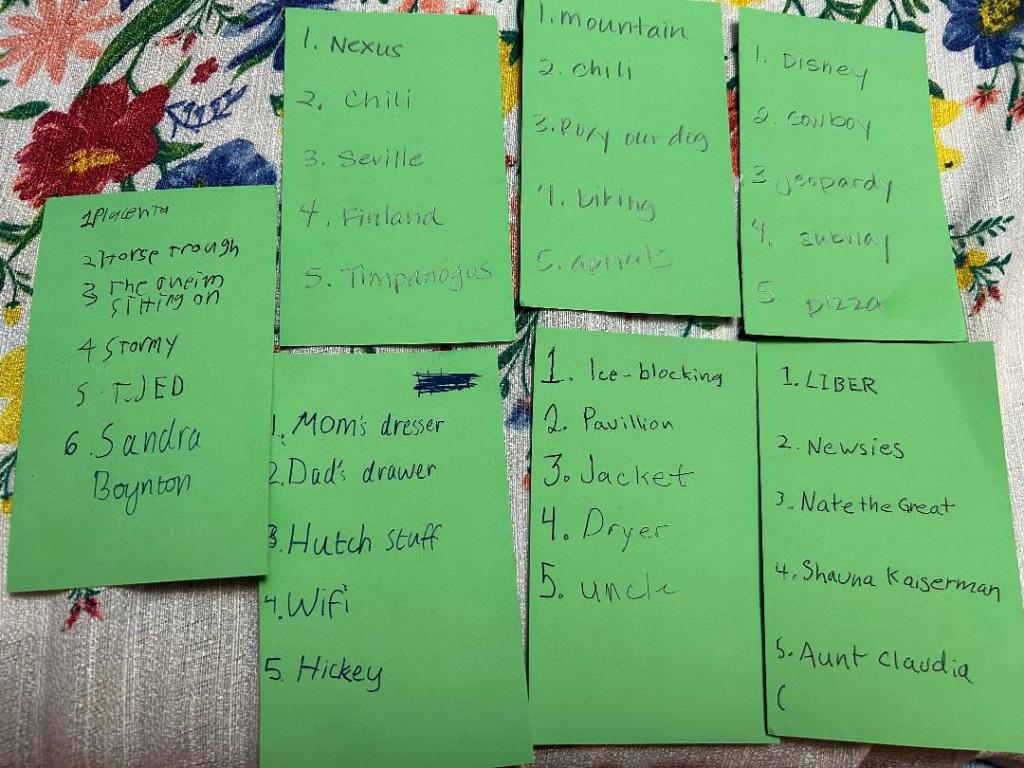 1. Nexus
2. Chili
3. Seville
4. Finland
5. Timpanogos
1. mountain
2. chili
3. Roxy our dog
4. viking
5.
1. Disney
2. cowboy
3 jeopardy
4. subway
5. pizza
1 Placenta
2 Horse trough
3 The
sitting on
4 Stormy
5 T.J ED
6. Sandra
Boynton
1. Mom's dresser
2. Dad's drawer
3. Hutch stuff
4. Wifi
5. Hickey
1. Ice-blocking
2. Pavillion
3. Jacket
4. Dryer
5. uncle
1. LIBER
2. Newsies
3. Nate the Great
4. Shauna Kaiserman
5. Aunt Claudia
(